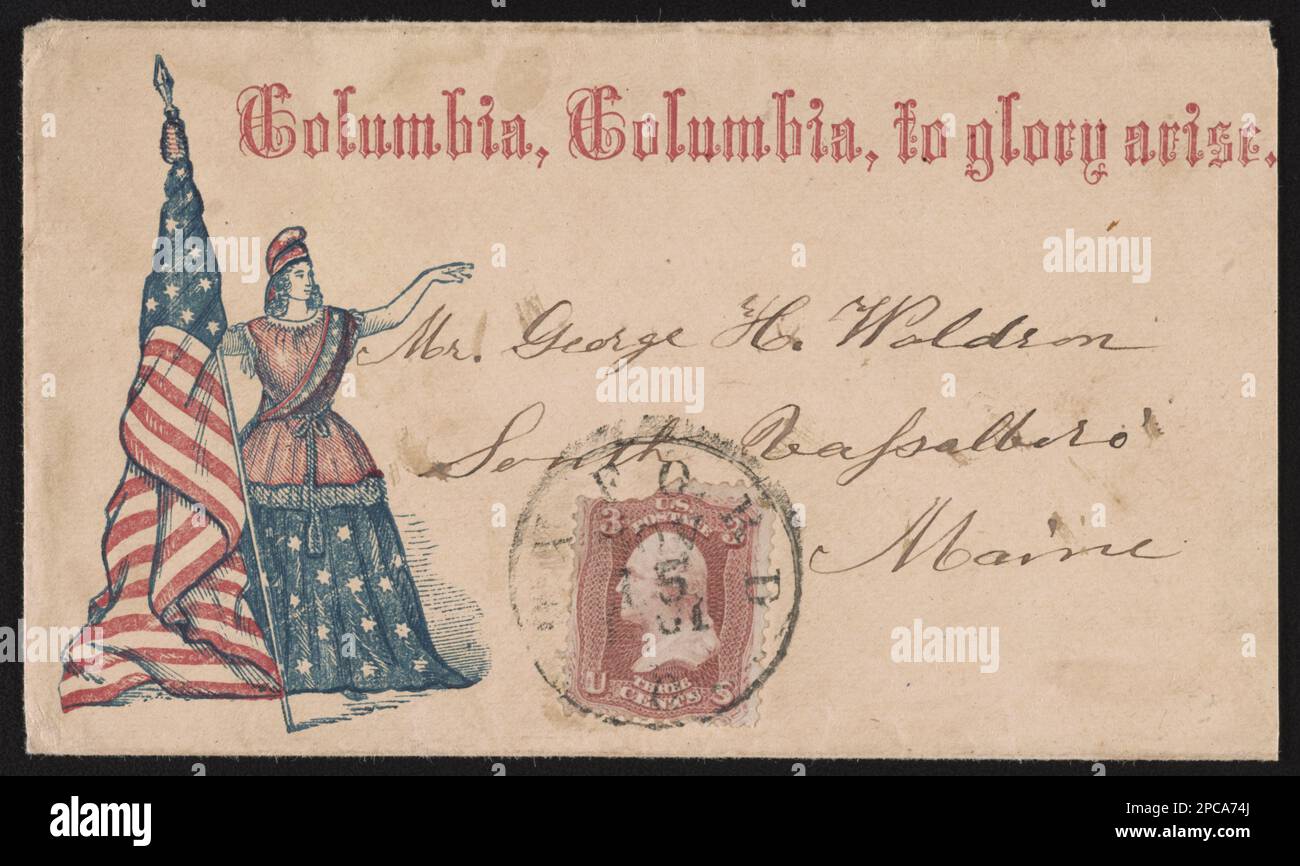 Columbia, Columbia, to glory arise.
Mr. George H. Waldron
South Vassalboro'
Maine
3 U.S. 3
15
61
U THREE CENTS S
alamy
Image ID: 2PCA74J
www.alamy.com